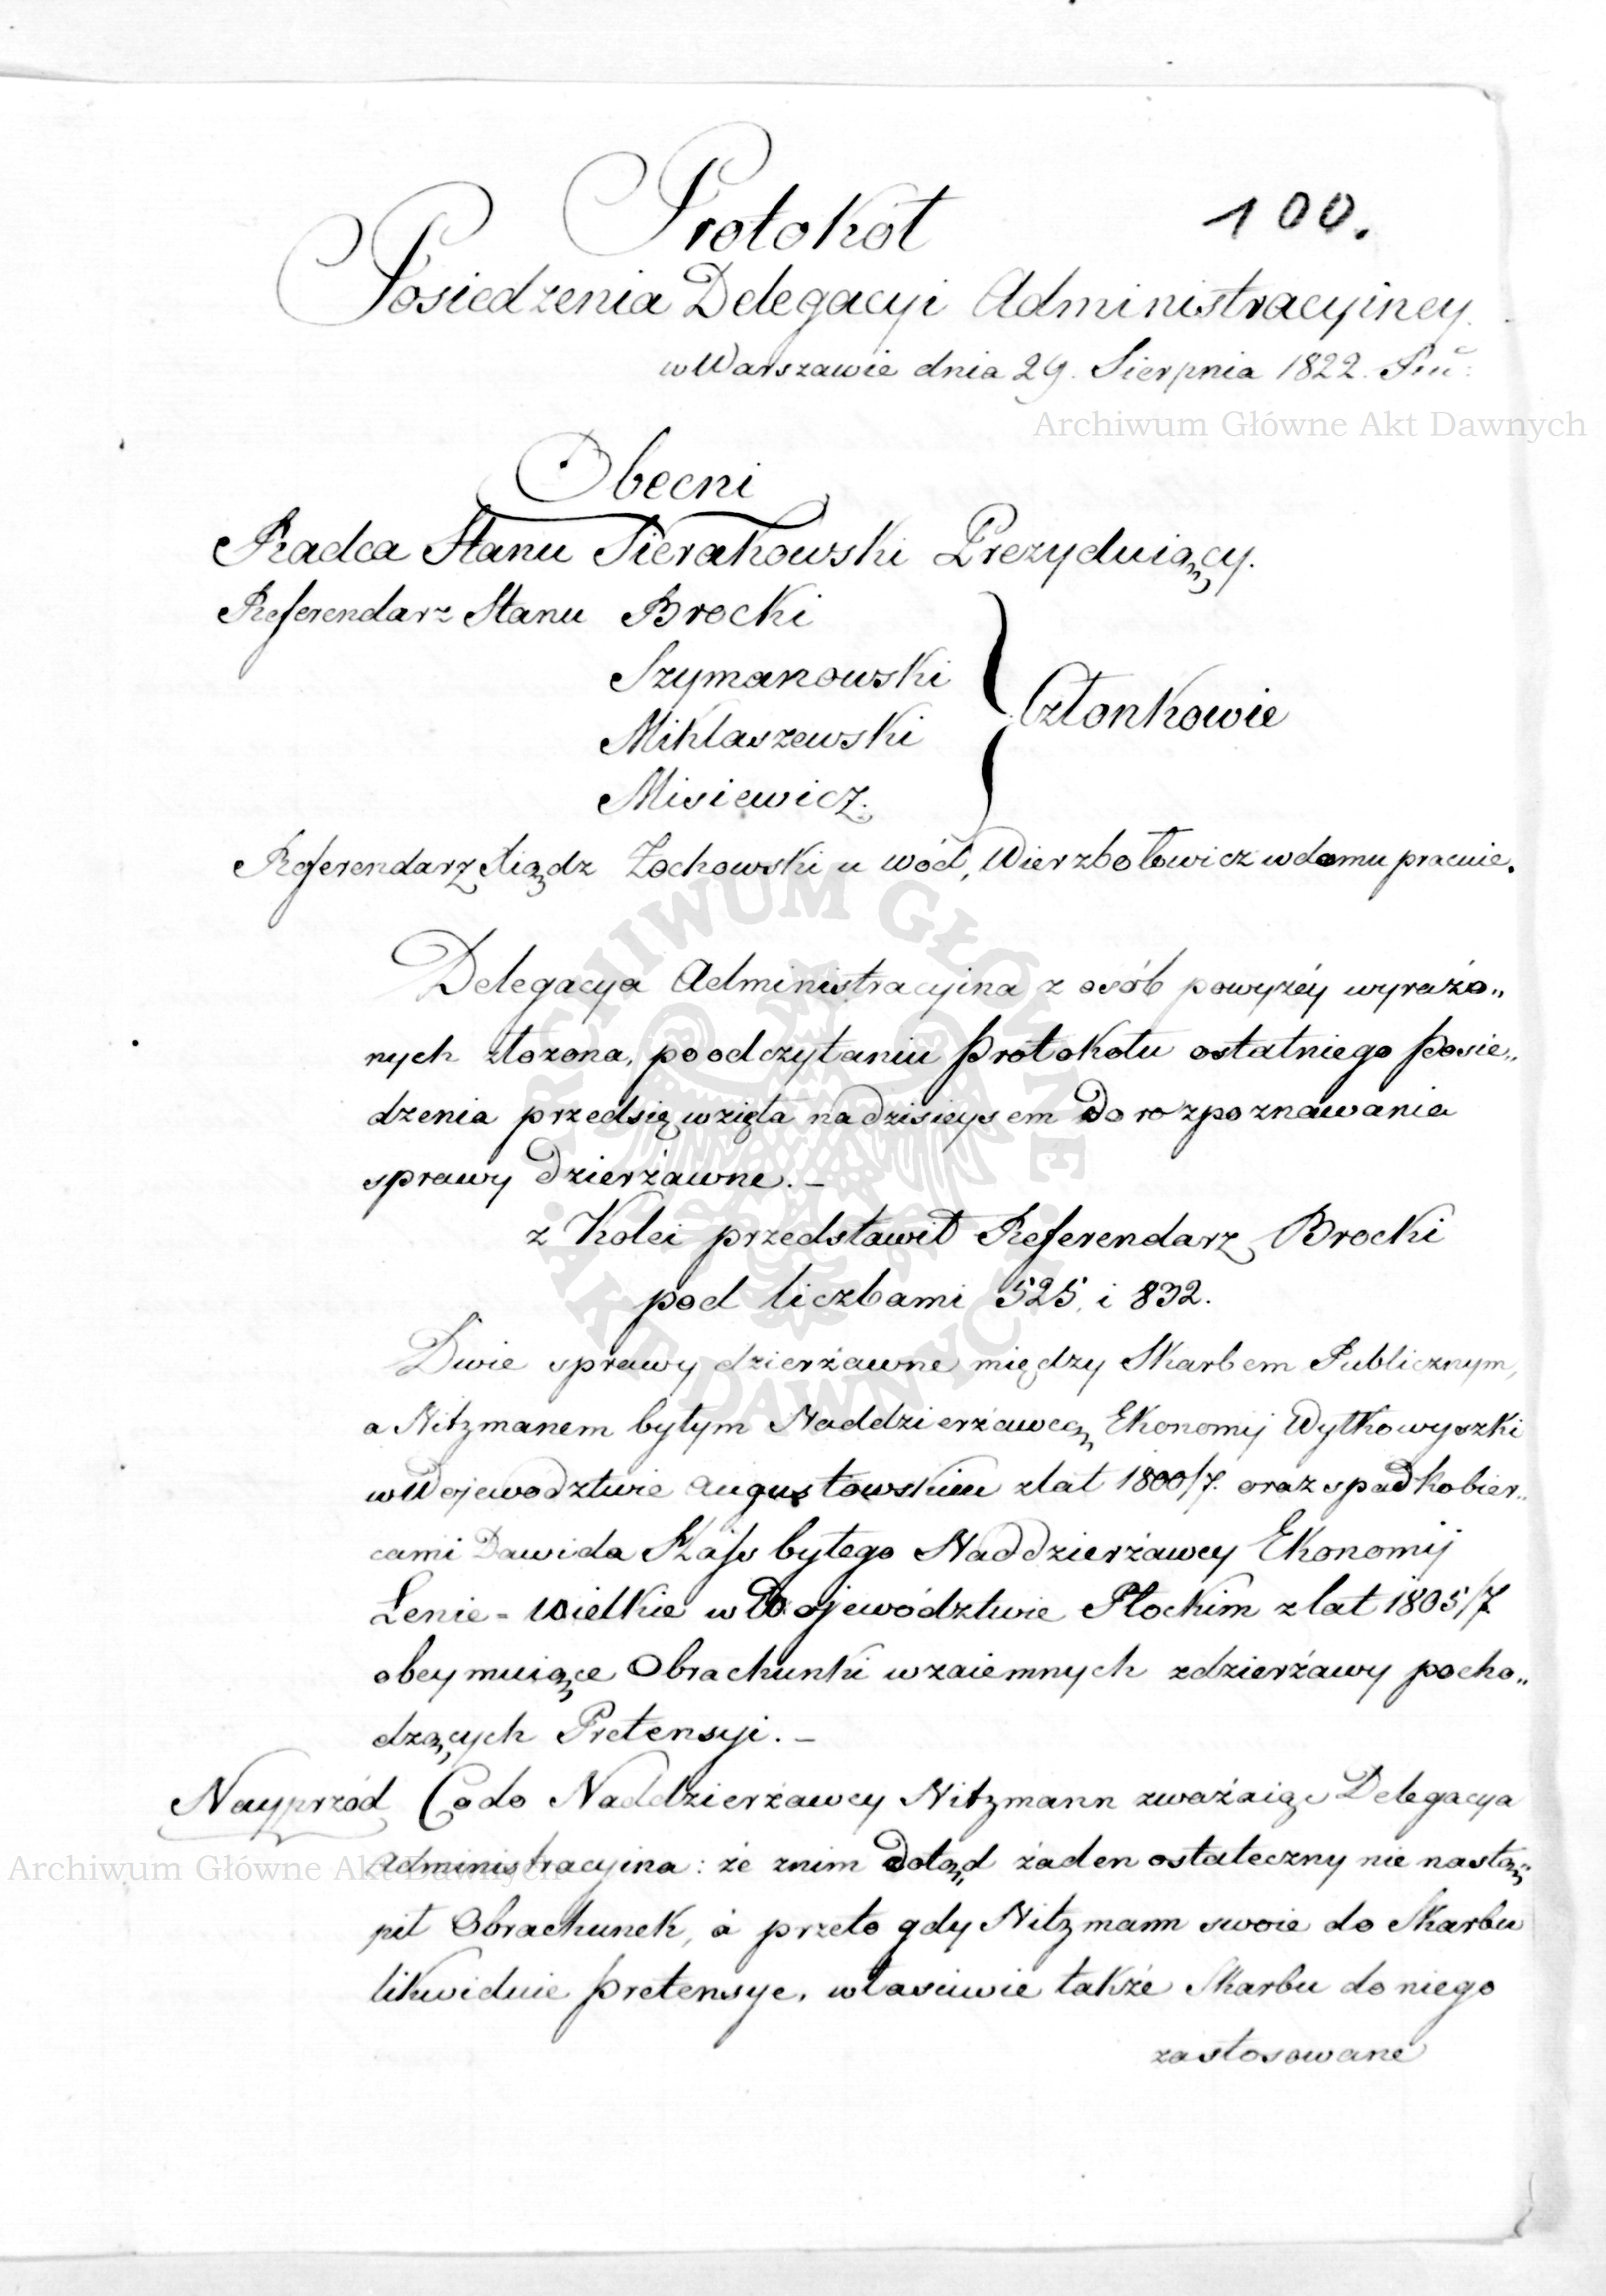 Protokół
100.
Posiedzenia Delegacyi Administracyiney
w Warszawie dnia 29. Sierpnia 1822. Ru:
Archiwum Główne Akt Dawnych
Obecni
Radca Stanu Sierakowski Prezyduiący.
Referendarz Stanu Brocki
Szymanowski
Członkowie
Miklaszewski
Misiewicz.
Referendarz Xiądz Żochowski u wód, Wierzbołowicz w domu pracuie.
Delegacya Administracyina z osób powyżéy wyrażo„
nych złożona, po odczytaniu protokołu ostatniego posie„
dzenia przedsięwzięła na dzisieysem do rozpoznawania
sprawy dzierżawne. –
z Kolei przedstawił Referendarz Brocki
pod liczbami 525 i 832.
Dwie sprawy dzierżawne między Skarbem Publicznym,
a Nitzmanem byłym Naddzierżawcą Ekonomij Wyłkowyszki
w Wojewodztwie Augustowskim z lat 1800/7. oraz spadkobier„
cami Dawida byłego Naddzierżawcy Ekonomij
Łenie - Wielkie w Województwie Płockim z lat 1805/7
obeymuiące Obrachunki wzaiemnych z dzierżawy pocho„
dzących Pretensyi. –
Nayprzód Co do Naddzierżawcy Nitzmann zważaiąc Delegacya
Administracyina: że z nim dotąd żaden ostateczny nie nastą„
Archiwum Główne Akt Dawnych
pił Obrachunek, a przeto gdy Nitzmann swoie do Skarbu
likwiduie pretensye, właściwie także Skarbu do niego
zastosowane
ARCHIWUM GŁÓWNE AKT DAWNYCH